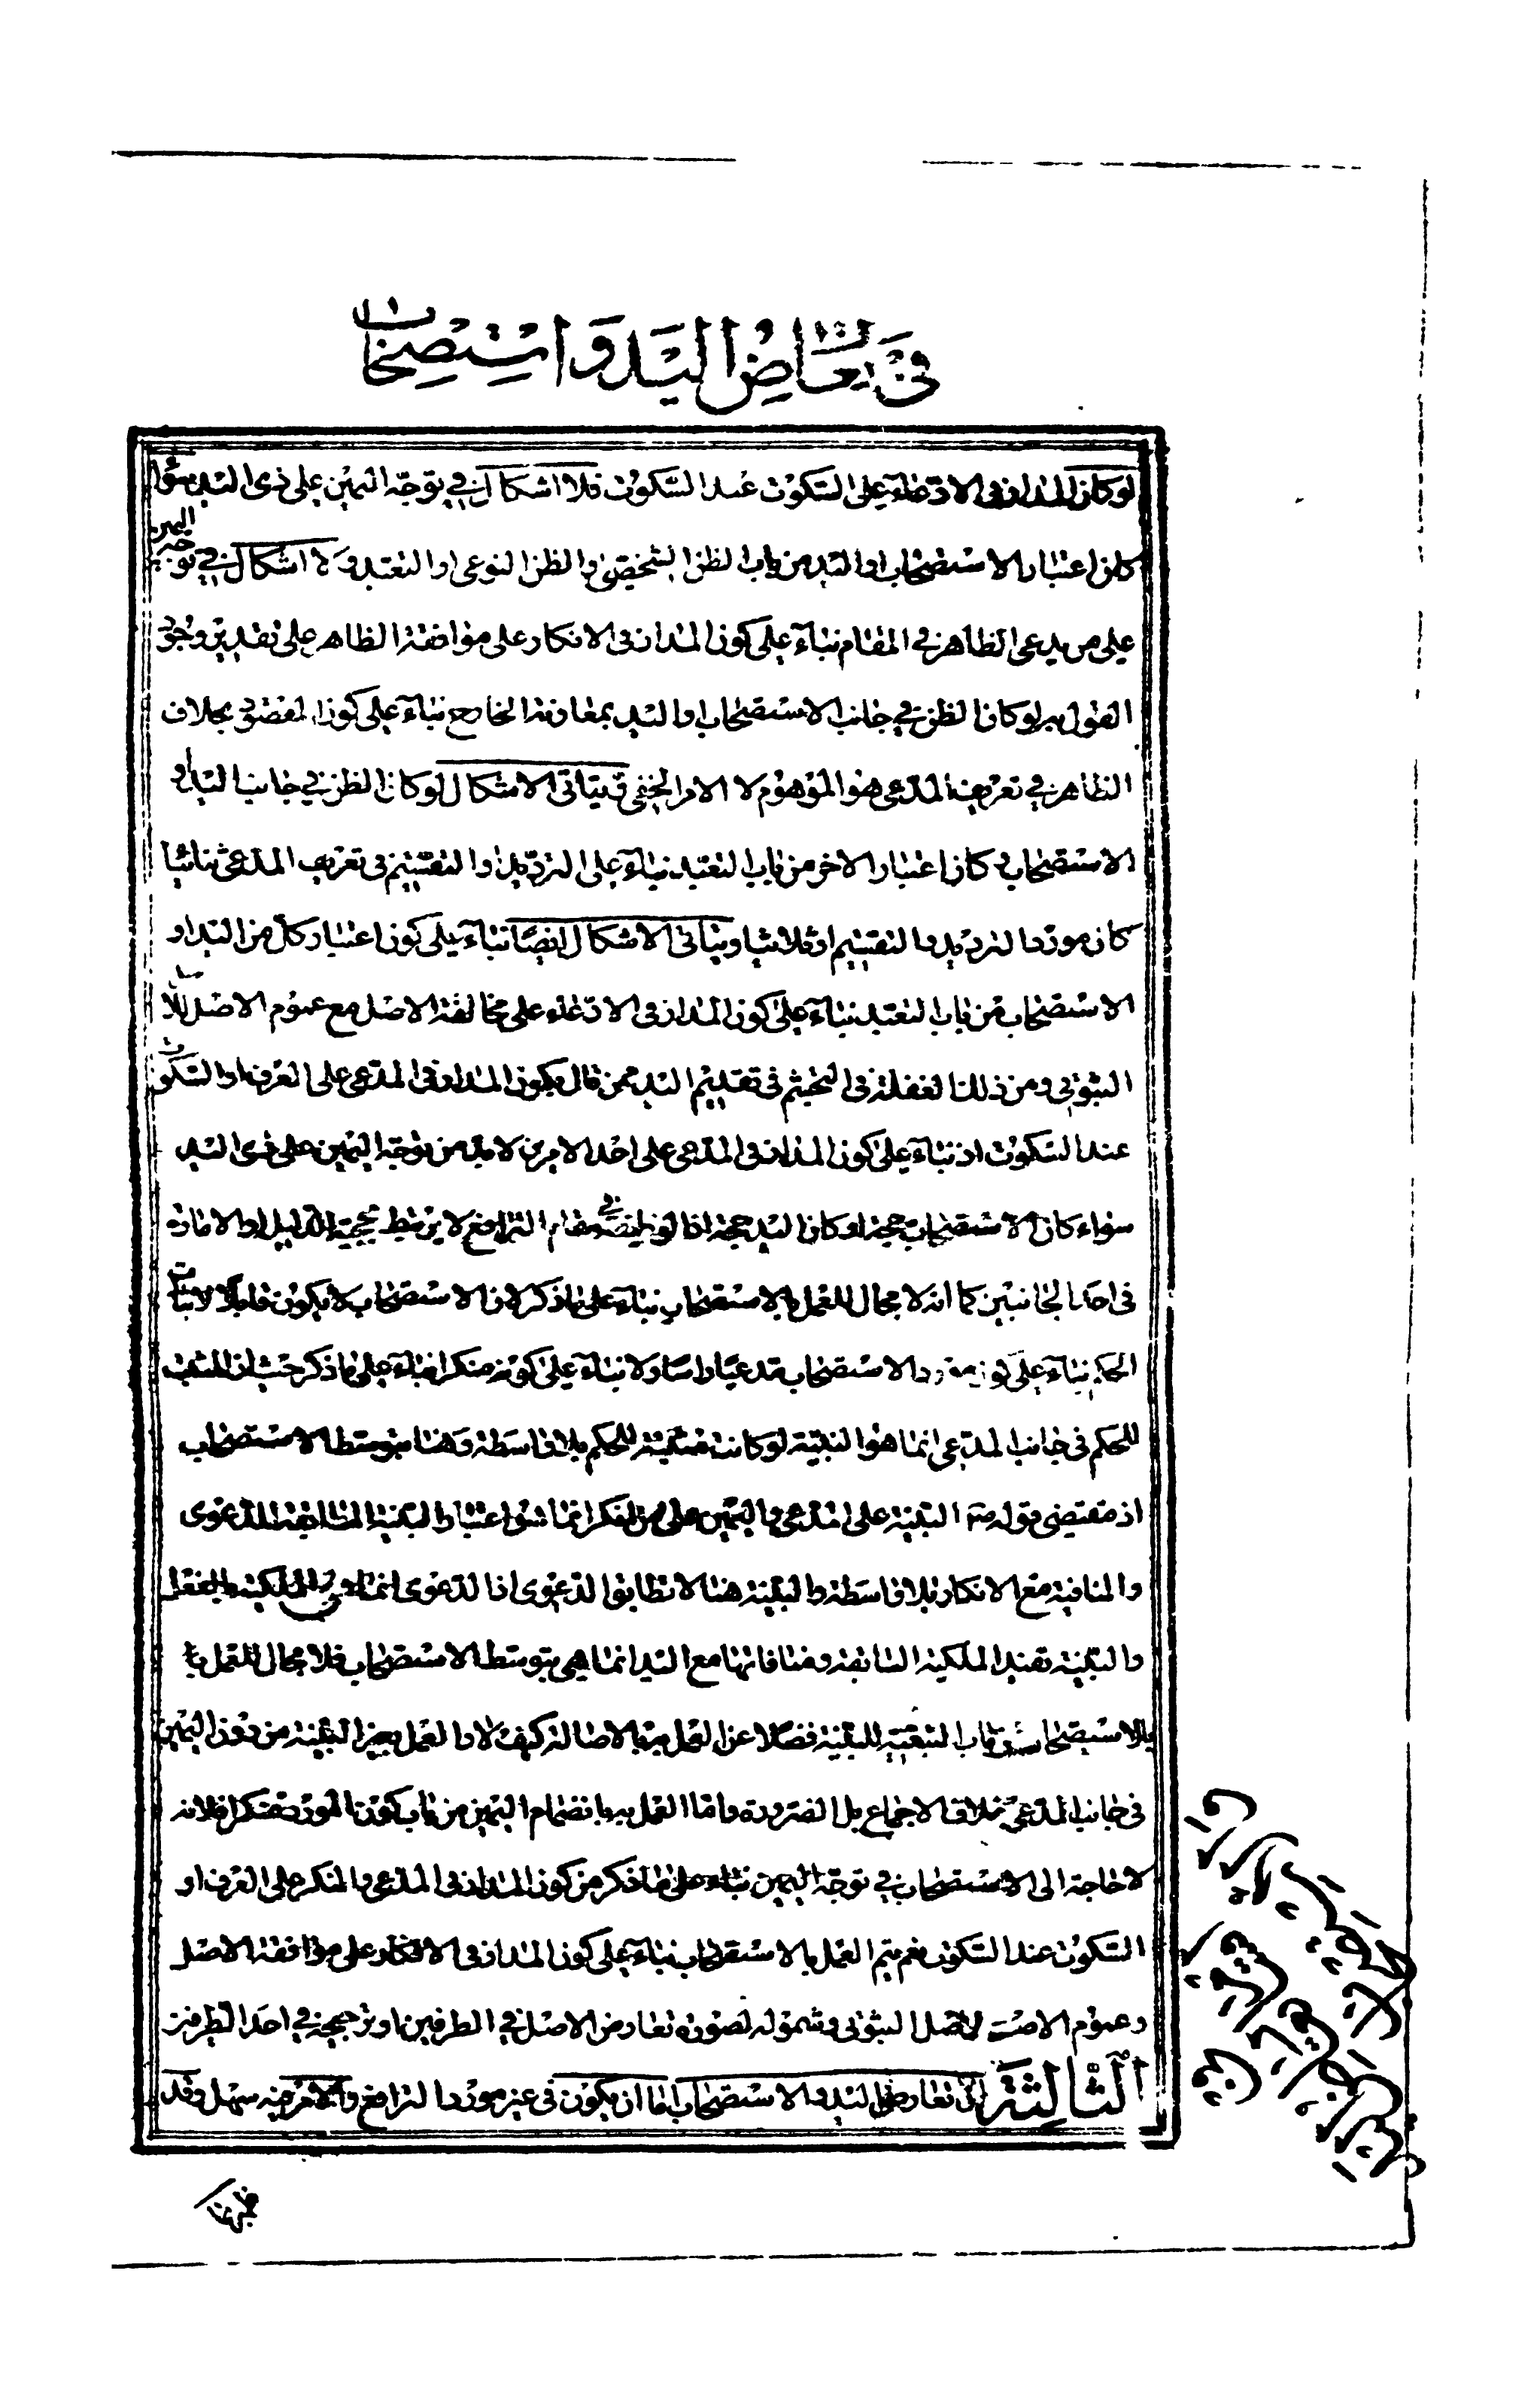 في تعارض اليد و استصحاب
لو كان المدار في الادعاء على السكوت عند السكوت فلا اشكال في توجه اليمين على ذى اليد سواء
كان اعتبار الاستصحاب او اليد من باب الظن الشخصى او الظن النوعى او التعبد و لا اشكال في توجه اليمين
على من يدعى الظاهر في المقام بناء على كون المدار في الانكار على موافقة الظاهر على تقدير وجوه
القول به لو كان الظن في جانب الاستصحاب او اليد بمعاونة الخارج بناء على كون المقصود بخلاف
الظاهر في تعريف المدعى هو الموهوم لا الامر الخفى و يتاتى الاشكال لو كان الظن في جانب اليد او
الاستصحاب و كان اعتبار الاخر من باب التعبد بناء على الترديد او التقسيم في تعريف المدعى ثنائيا
كان مورد الترديد و التقسيم او ثلاثيا و يتاتى الاشكال ايضا بناء على كون اعتبار كل من اليد او
الاستصحاب من باب التعبد بناء على كون المدار في الادعاء على مخالفة الاصل مع عموم الاصل للاصل
الثبوتى و من ذلك الغفلة في التجشم في تقديم اليد ممن قال بكون المدار في المدعى على العرف او السكوت
عند السكوت اذ بناء على كون المدار في المدعى على احد الامرين لا بد من توجه اليمين على ذى اليد
سواء كان الاستصحاب حجة او كان اليد حجة اذ الوظيفة في مقام الترافع لا يرتبط بحجية الدليل او الامارة
في احد الجانبين كما انه لا مجال للعمل بالاستصحاب بناء على ما ذكر لان الاستصحاب لا يكون قابلا لاثبات
الحكم بناء على كون مورد الاستصحاب مدعيا راسا و لا بناء على كونه منكرا بناء على ما ذكر حيث ان المثبت
للحكم في جانب المدعى انما هو البينة لو كانت مثبتة للحكم بلا واسطة و هنا بتوسط الاستصحاب
اذ مقتضى قوله ص البينة على المدعى و اليمين على من انكر انما هو اعتبار البينة المطابقة للدعوى
و المنافية مع الانكار بلا واسطة و البينة هنا لا تطابق الدعوى اذ الدعوى انما هى في الملكية بالفعل
و البينة تفيد الملكية السابقة و منافاتها مع اليد انما هى بتوسط الاستصحاب فلا مجال للعمل با
بالاستصحاب من باب التبعية للبينة فضلا عن العمل به بالاصالة كيف لا و العمل بغير البينة من دون اليمين
في جانب المدعى خلاف الاجماع بل الضرورة و اما العمل به بانضمام اليمين من باب كون المورد منكرا فلانه
لا حاجة الى الاستصحاب في توجه اليمين بناء على ما ذكر من كون المدار في المدعى و المنكر على العرف او
السكوت عند السكوت نعم يتم العمل بالاستصحاب بناء على كون المدار في الانكار على موافقة الاصل
و عموم الاصل للاصل الثبوتى و شموله لصورة تعارض الاصل في الطرفين او ترجيحه في احد الطرفين
الثالثة ان تعارض اليد و الاستصحاب اما ان يكون في غير مورد الترافع و الامر فيه سهل و قد